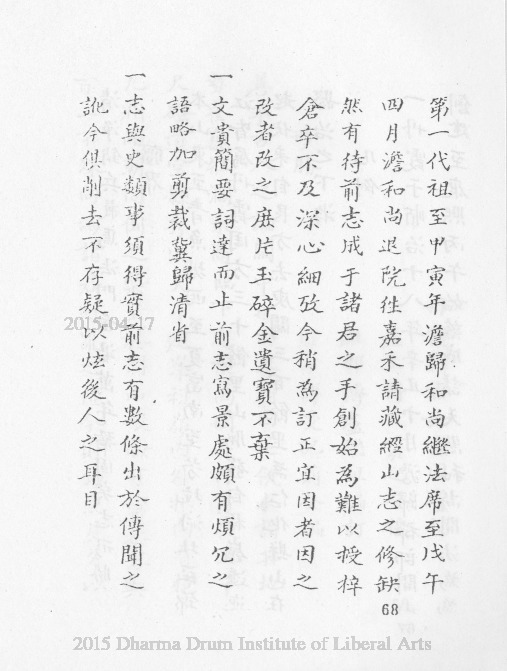 第一代祖至甲寅年澹歸和尚繼法席至戊午
四月澹和尚退院徃嘉禾請藏經山志之修缺
然有待前志成于諸君之手創始為難以授梓
倉卒不及深心細攷今稍為訂正宜因者因之
改者改之庶片玉碎金遺寶不棄
一文貴簡要詞達而止前志寫景處頗有煩冗之
語略加剪裁冀歸清省
一志與史類事須得實前志有數條出於傳聞之
訛今俱削去不存疑以炫後人之耳目
68
2015-04-17
2015 Dharma Drum Institute of Liberal Arts